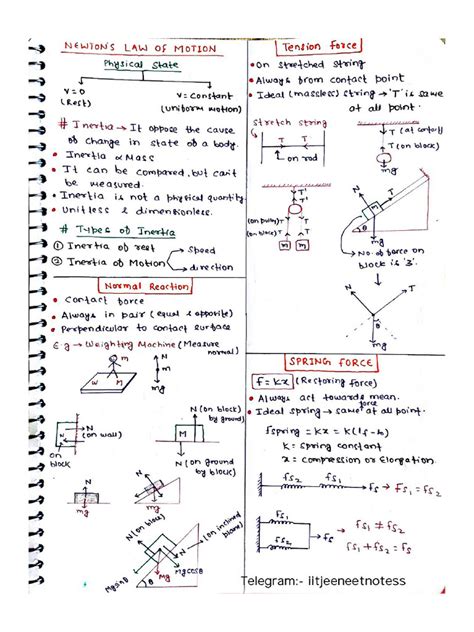 NEWTON'S LAW OF MOTION
Physical State
V = 0
(Rest)
V = Constant
(Uniform motion)
# Inertia → It oppose the cause
of change in state of a body.
• Inertia ∝ Mass
• It can be compared, but can't
be measured.
• Inertia is not a physical quantity
• Unitless & dimensionless.
# Types of Inertia
① Inertia of rest
② Inertia of Motion
Speed
direction
Normal Reaction
• Contact force
• Always in pair (equal & opposite)
• Perpendicular to contact surface
E.g → Weighting Machine (Measure
normal)
N
m
m
mg
W
M
N
N
(on wall)
on
block
N (on block
by ground)
M
N (on ground
by block)
N
mg
N
mg
N (on block)
N (on inclined
plane)
Mgsinθ
θ
Mg
Mgcosθ
Tension force
• On stretched string
• Always from contact point
• Ideal (massless) string → 'T' is same
at all point.
Stretch string
T
T
T on rod
T (at contact)
T (on block)
mg
T'
T'
(on pulley) T
T
(on block) T
T
m
m
N
T
m
θ
mg
No. of force on
block is '3'.
N
T
θ
mg
SPRING FORCE
f = kx (Restoring force)
• Always act towards mean.
• Ideal spring → same force at all point.
fspring = kx = k(lf - li)
k = spring constant
x = compression or Elongation.
fs1
fs2
fs → fs1 = fs2
fs1
fs2
fs
fs1 ≠ fs2
fs1 + fs2 = fs
Telegram:- iitjeeneetnotess